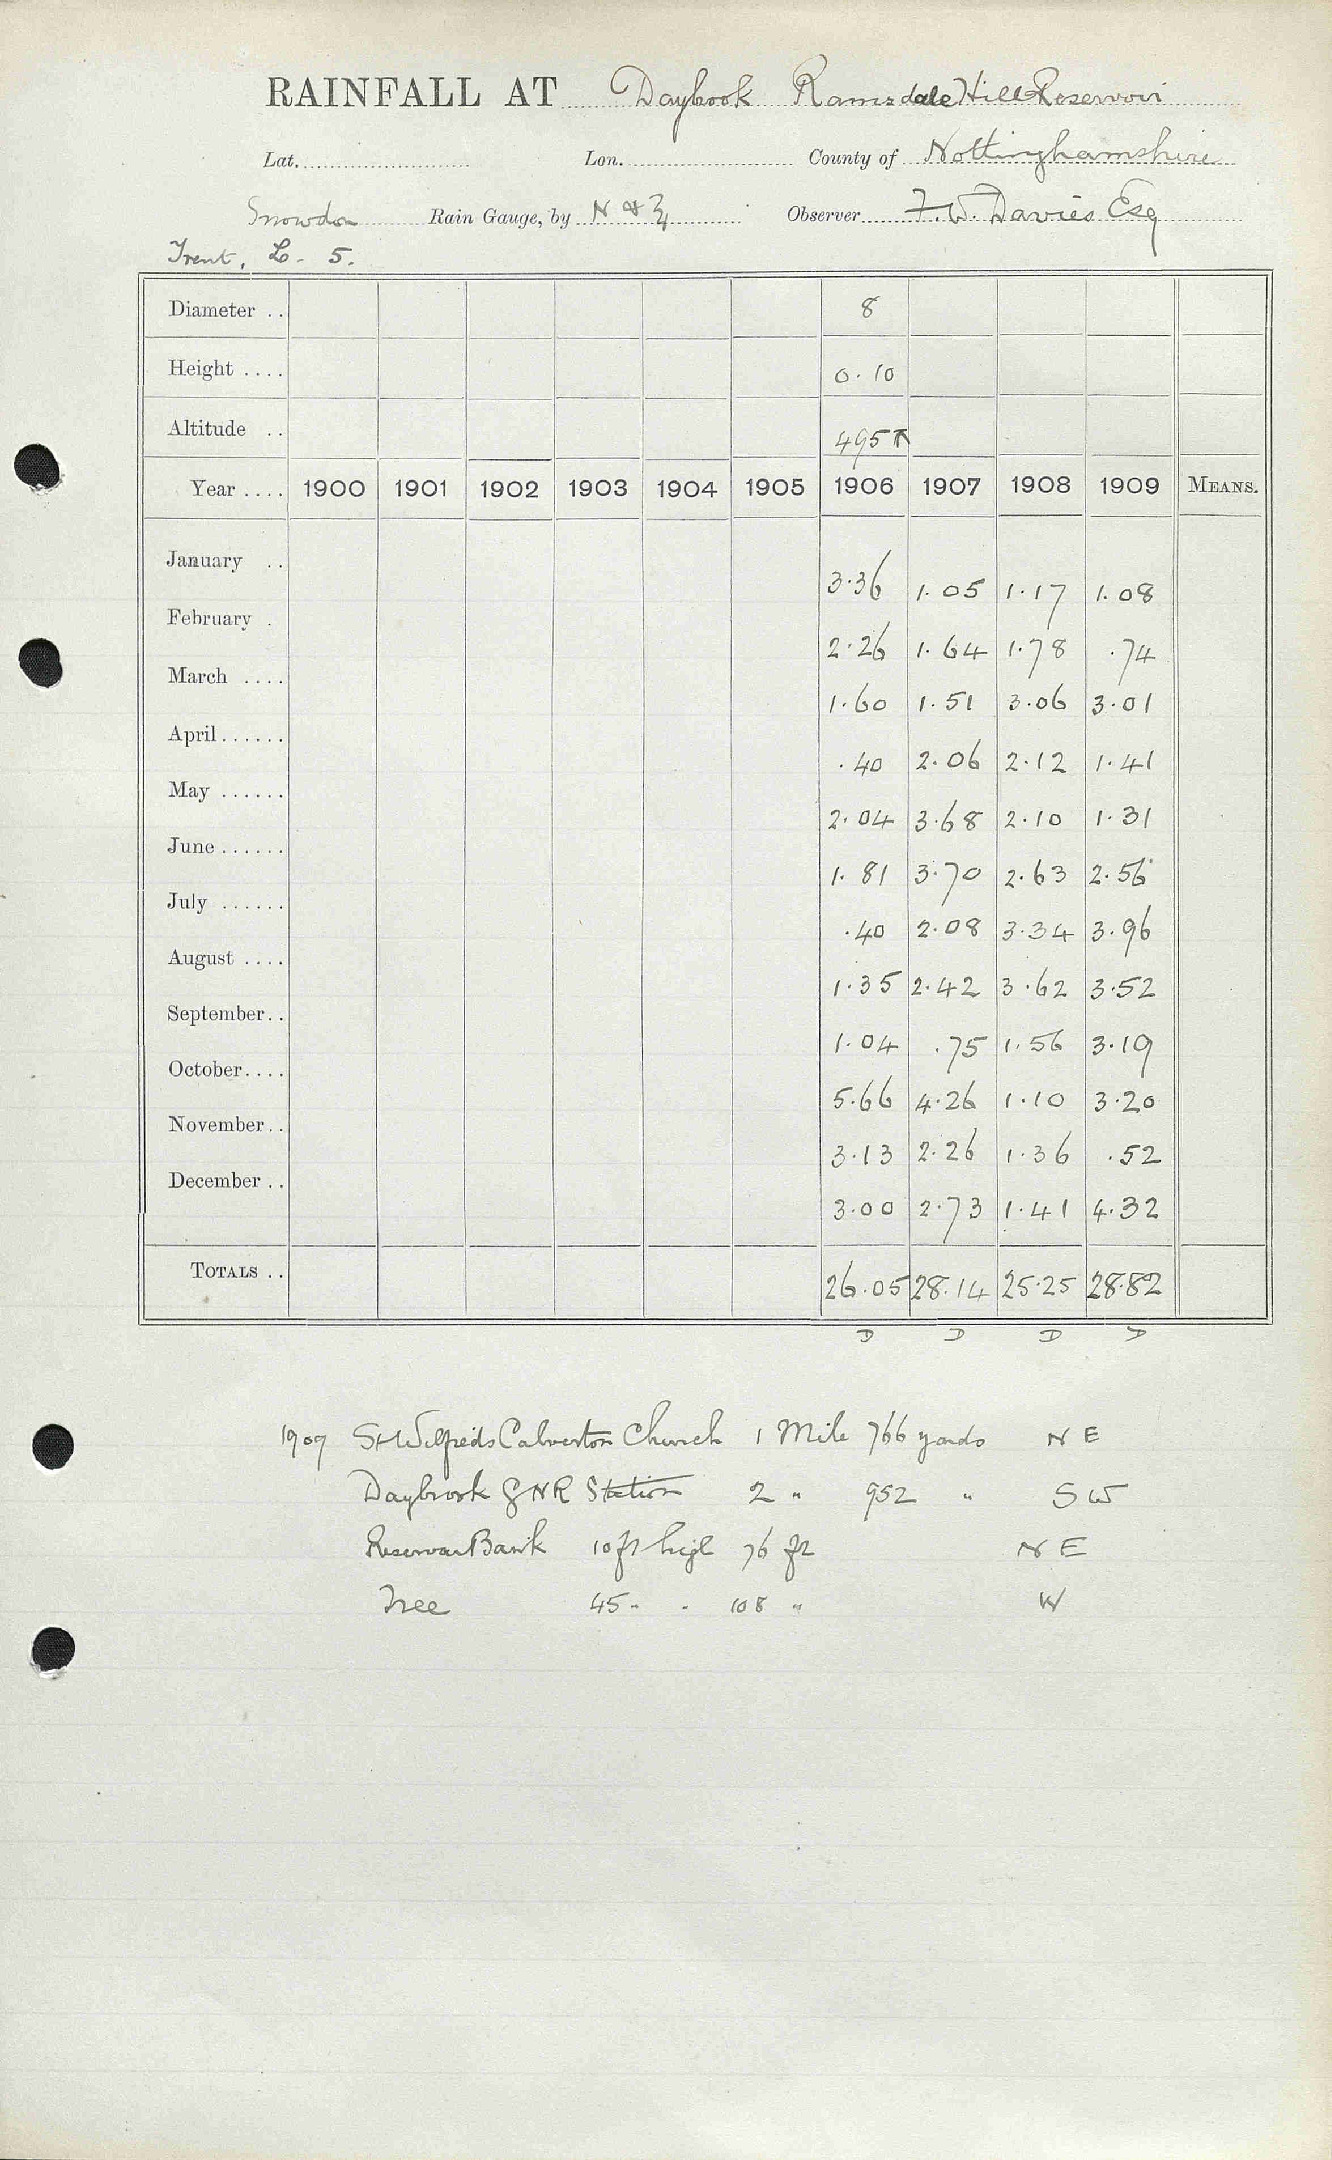 RAINFALL AT Daybrook Ramsdale Hill Reservoir
Lat. Lon. County of Nottinghamshire
Snowdon Rain Gauge, by N & Z Observer F.W. Davies Esq
Trent, L. 5.
Diameter .. 8
Height .... 0.10
Altitude .. 495
Year .... 1900 1901 1902 1903 1904 1905 1906 1907 1908 1909 MEANS.
January .. 3.36 1.05 1.17 1.08
February . 2.26 1.64 1.78 .74
March .... 1.60 1.51 3.06 3.01
April...... .40 2.06 2.12 1.41
May ...... 2.04 3.68 2.10 1.31
June ...... 1.81 3.70 2.63 2.56
July ...... .40 2.08 3.34 3.96
August .... 1.35 2.42 3.62 3.52
September.. 1.04 .75 1.56 3.19
October.... 5.66 4.26 1.10 3.20
November.. 3.13 2.26 1.36 .52
December .. 3.00 2.73 1.41 4.32
TOTALS .. 26.05 28.14 25.25 28.82
D D D D
1909 St Wilfreds Calverton Church 1 Mile 766 yards N E
Daybrook GNR Station 2 " 952 " S W
Reservoir Bank 10 ft high 76 ft N E
Tree 45 " " 108 " W